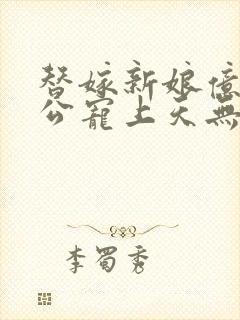 替嫁新娘億
公寵上天無
李蜀秀